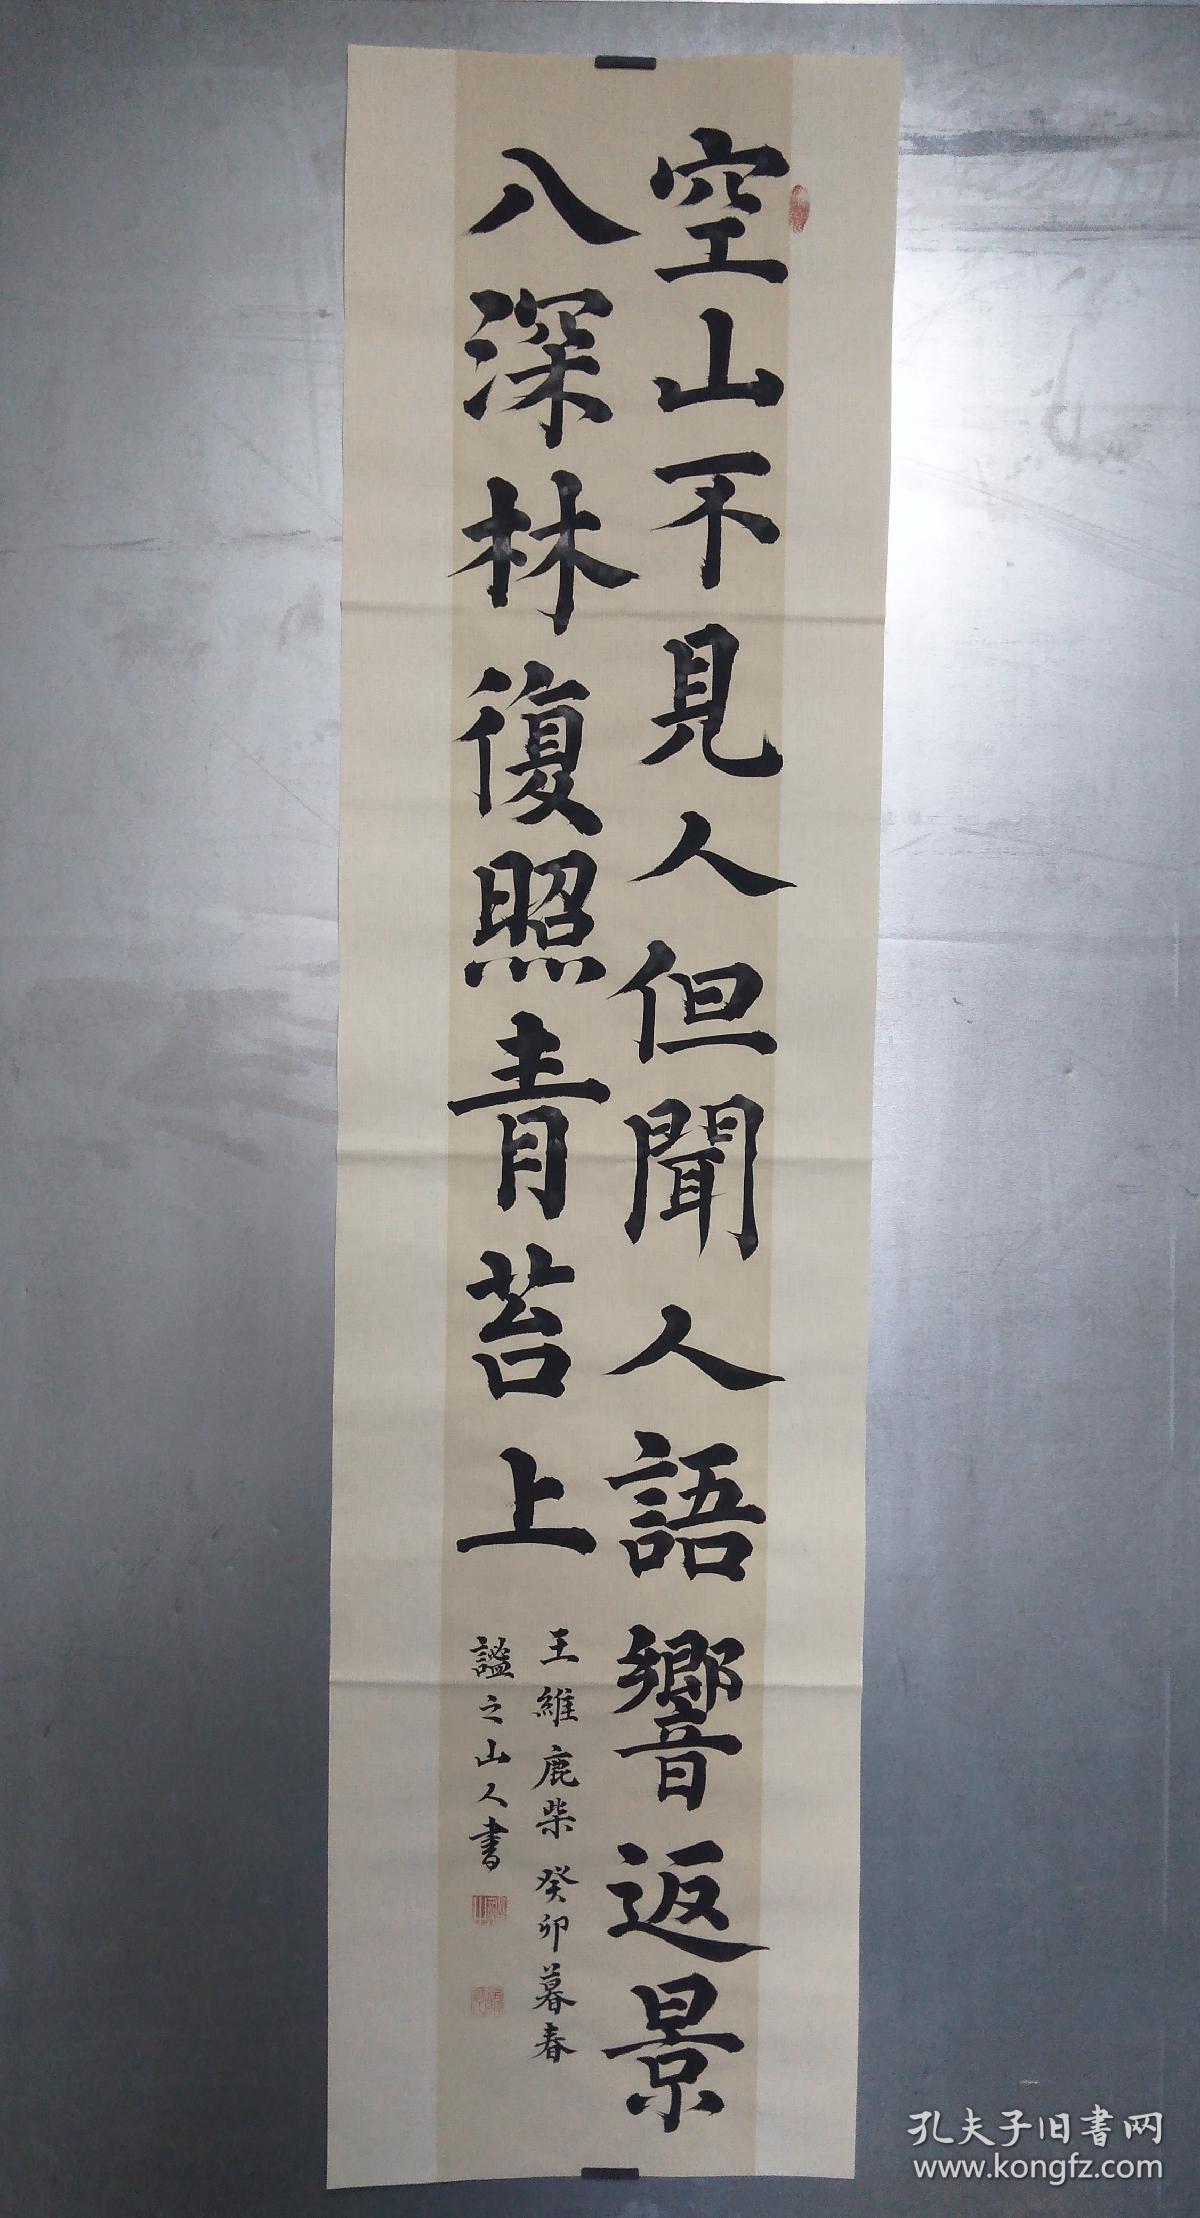 空山不見人但聞人語響返景
入深林復照青苔上
王維鹿柴 癸卯暮春
謐之山人書
孔夫子旧书网
www.kongfz.com